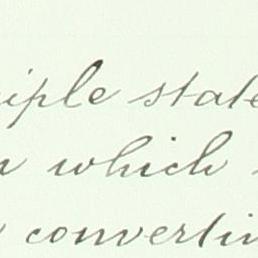 iple state
which
convertin